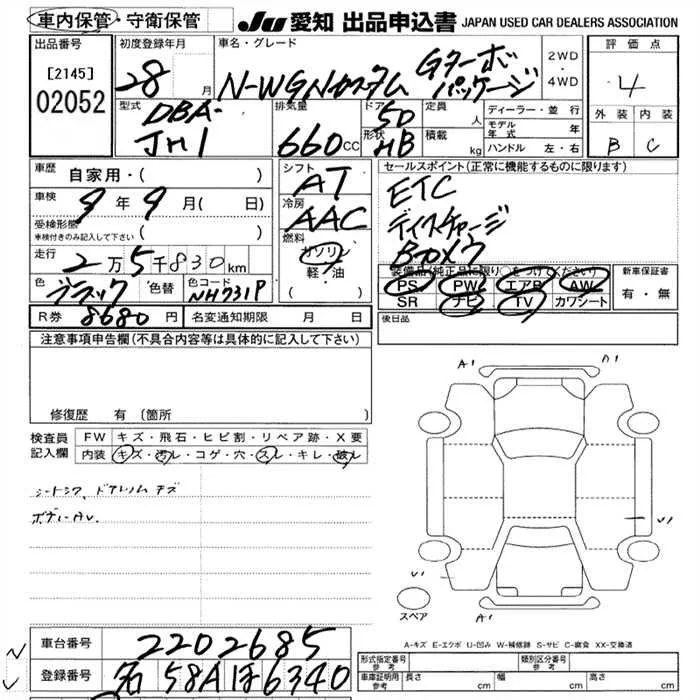 車内保管・守衛保管 JU 愛知 出品申込書 JAPAN USED CAR DEALERS ASSOCIATION
出品番号 初度登録年月 車名・グレード 評価点
[2145] 02052 28 月 N-WGNカスタム Gターボパッケージ 2WD・4WD 4
型式 排気量 ドア 定員 ディーラー・並行 外装 内装
DBA-JH1 660cc 5D 人 モデル年式 年 B C
形状 HB 積載 kg ハンドル 左・右
車歴 自家用・( ) シフト AT セールスポイント(正常に機能するものに限ります)
車検 9年9月(日) 冷房 AAC ETC
受検形態 ディスチャージ
車検付きのみ記入して下さい ( ) 燃料 ガソリン
走行 2万5千830km 軽・油 装備品(純正品に限り○をつけてください) 新車保証書
色 ブラック 色替 色コード NH731P ( ) PS PW エアB AW 有・無
SR ナビ TV カワシート
R券 8680円 名変通知期限 月 日 後日品
注意事項申告欄(不具合内容等は具体的に記入して下さい)
A1 A1
修復歴 有(箇所 )
検査員記入欄 FW キズ・飛石・ヒビ割・リペア跡・X要
内装 キズ・汚レ・コゲ・穴・スレ・キレ・破レ
ドアトリム キズ
U1
U1
スペア A1
A-キズ E-エクボ U-凹み W-補修跡 S-サビ C-腐食 XX-交換済
車台番号 2202685
形式指定番号 参考 類別区分番号 参考
登録番号 名 58A ほ 6340
車庫証明用 参考 長さ cm 幅 cm 高さ cm